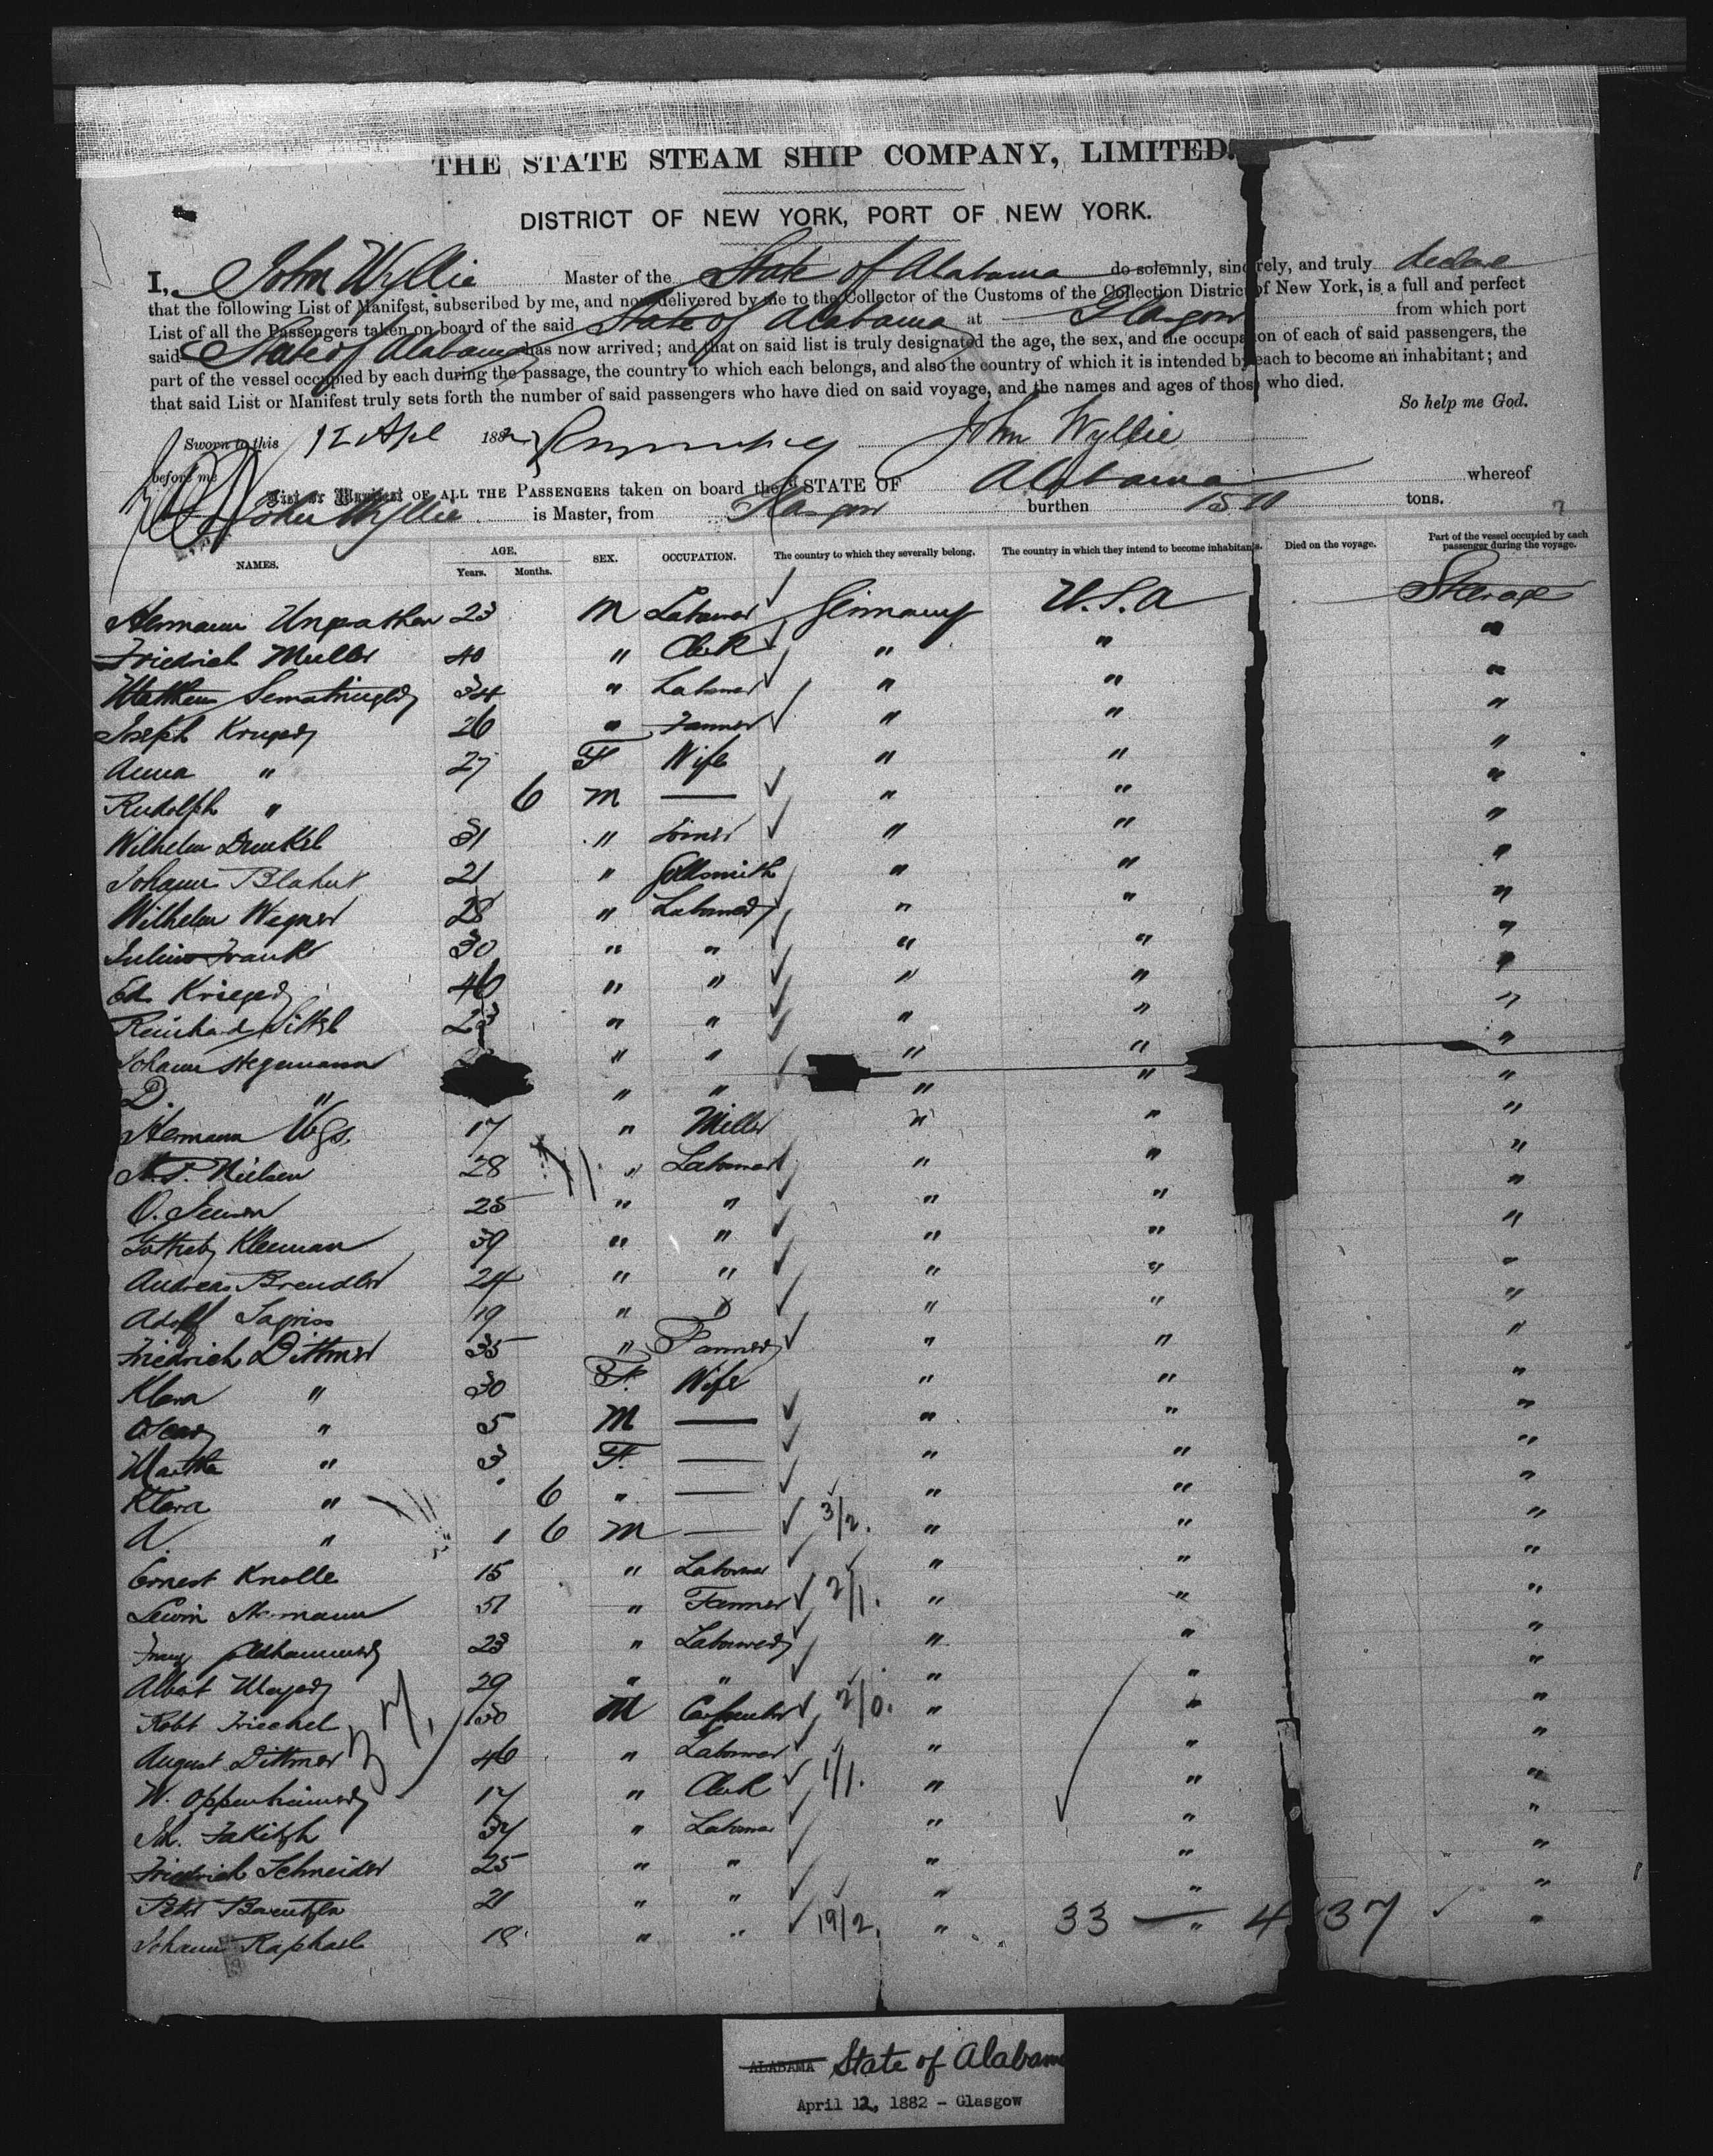 THE STATE STEAM SHIP COMPANY, LIMITED.
DISTRICT OF NEW YORK, PORT OF NEW YORK.
I, John Wyllie Master of the State of Alabama do solemnly, sincerely, and truly declare
that the following List of Manifest, subscribed by me, and now delivered by me to the Collector of the Customs of the Collection District of New York, is a full and perfect
List of all the Passengers taken on board of the said State of Alabama at Glasgow from which port
said State of Alabama has now arrived; and that on said list is truly designated the age, the sex, and the occupation of each of said passengers, the
part of the vessel occupied by each during the passage, the country to which each belongs, and also the country of which it is intended by each to become an inhabitant; and
that said List or Manifest truly sets forth the number of said passengers who have died on said voyage, and the names and ages of those who died.
So help me God.
Sworn to this 12 Apl 1882 John Wyllie
before me
List or Manifest OF ALL THE PASSENGERS taken on board the STATE OF Alabama whereof
John Wyllie is Master, from Glasgow burthen 1510 tons.
NAMES. AGE. Years. Months. SEX. OCCUPATION. The country to which they severally belong. The country in which they intend to become inhabitants. Died on the voyage. Part of the vessel occupied by each passenger during the voyage.
Hermann 23 M Labourer Germany U.S.A Steerage
Friedrich Muller 40 " Clerk " " "
34 " Labourer " " "
Joseph Kruger 26 " Farmer " " "
Anna " 27 F Wife " " "
Rudolph " 6 M — " " "
Wilhelm Dunkel 31 " Joiner " " "
Johann Blahut 21 " Goldsmith " " "
Wilhelm Wegner 28 " Labourer " " "
Julius Frank 30 " " " " "
Ed. Krieger 46 " " " " "
Reinhard Sittel 23 " " " " "
Johann Stegemann " " " " "
D. " " " " " "
Hermann 17 " Miller " " "
N.P. Nielsen 28 " Labourer " " "
O. Jensen 25 " " " " "
Gottlieb Kleeman 39 " " " " "
Andreas Brendler 24 " " " " "
Adolf 19 " " " " "
Friedrich Dittmer 35 " Farmer " " "
Klara " 30 F. Wife " " "
Oscar " 5 M — " " "
Martha " 3 F. — " " "
Klara " 6 " — " " "
A. " 1 6 M — 3/2. " " "
Ernest Knolle 15 " Labourer " " "
Lewin 51 " Farmer 2/1. " " "
Franz 23 " Labourer " " "
Albert Mayer 29 " " " " "
Robt Friechel 30 M Carpenter 2/0. " " "
August Dittmer 46 " Labourer " " "
W. Oppenheimer 17 " Clerk 1/1. " " "
Jakitzh 34 " Labourer " " "
Friedrich Schneider 25 " " " " "
Peter 21 " " " " "
Johann Raphael 18 " " 19/2. " 33 — 4 37 " "
ALABAMA State of Alabama
April 12, 1882 - Glasgow